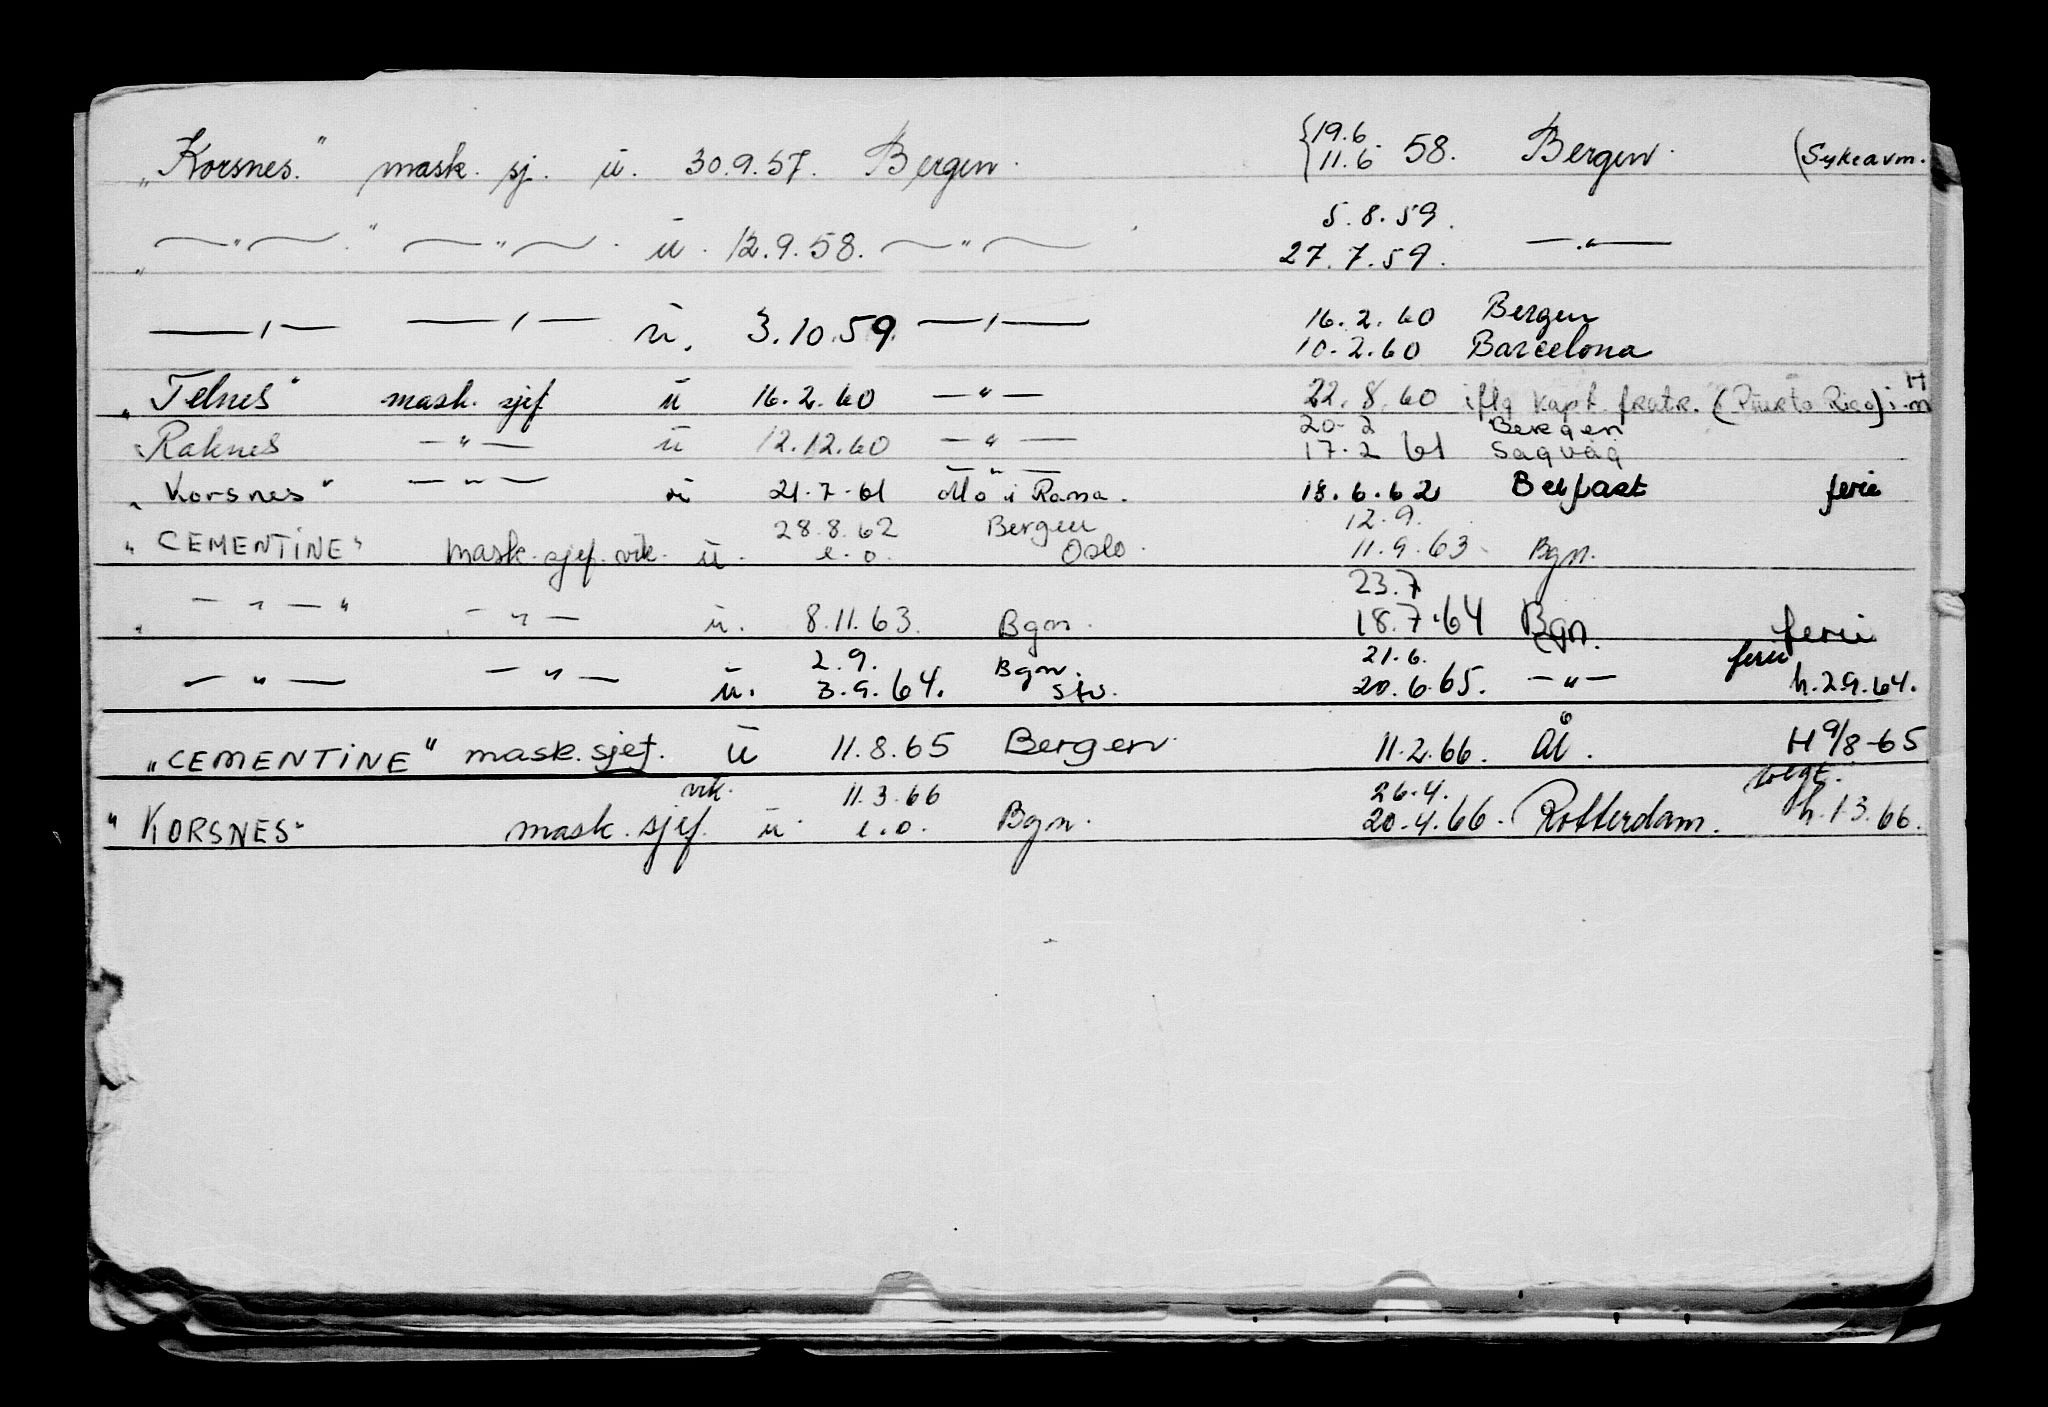 „Korsnes." mask. sj. ü. 30.9.57. Bergen. {19.6 11.6 58. Bergen. (Sykeavm.
„—"—." —"— ü. 12.9.58. —"— 5.8.59. 27.7.59. —"—
—"— —"— ü. 3.10.59. —"— 16.2.60 Bergen
10.2.60 Barcelona
„Telnes" mask. sjef ü 16.2.60 —"— 22.8.60 iflg kapt. fratr. (Puerto Rico)
Raknes —"— ü 12.12.60 —"— 20-2 Bergen
17.2 61 Sagvåg
„Korsnes" —"— ü 21.7.61 Mo i Rana. 18.6.62 Belfast ferie
„CEMENTINE" mask.sjef. vik. ü. 28.8.62 Bergen 12.9.
e.o. Oslo. 11.9.63. Bgn.
„—"—" —"— ü. 8.11.63. Bgn. 23.7
18.7.64 Bgn. ferie
—"— —"— ü. 2.9. Bgn. 21.6. ferie
3.9.64. Stv. 20.6.65. —"— h.2.9.64.
„CEMENTINE" mask.sjef. ü 11.8.65 Bergen 11.2.66. Ål. H 9/8-65
"KORSNES" mask.sjef. vik. ü. 11.3.66 Bgn. 26.4.
e.o. 20.4.66. Rotterdam. h.1.3.66.